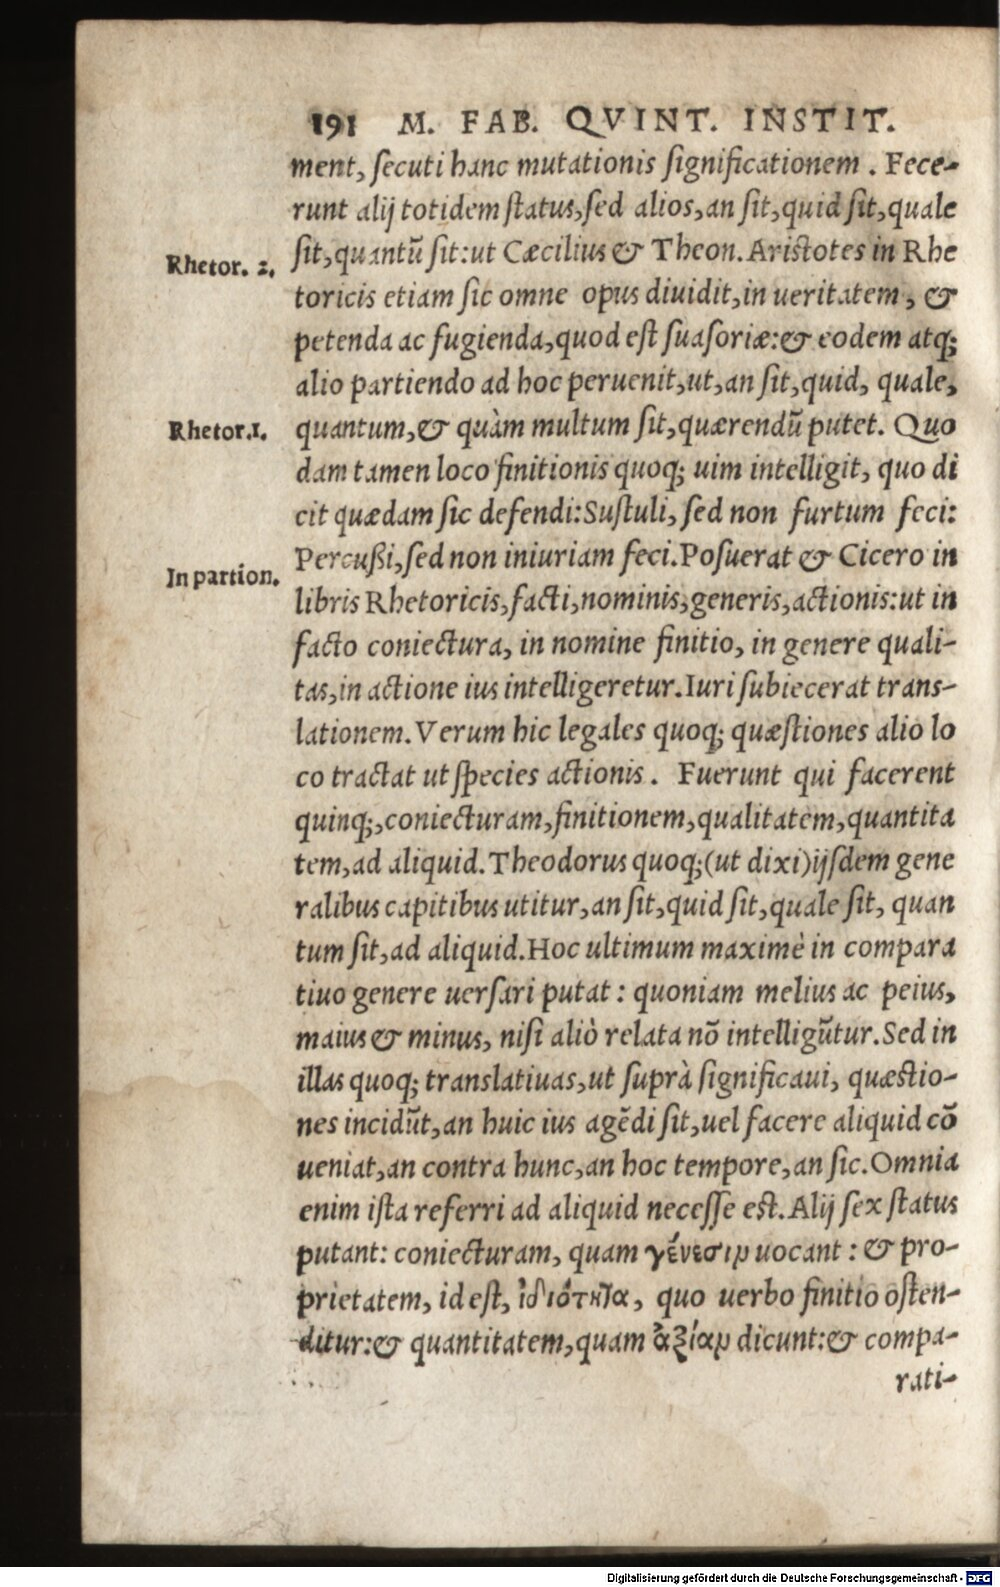 191 M. FAB. QVINT. INSTIT.
ment, secuti hanc mutationis significationem. Fece-
runt alij totidem status, sed alios, an sit, quid sit, quale
Rhetor. 2.
sit, quantũ sit: ut Cæcilius & Theon. Aristotes in Rhe
toricis etiam sic omne opus diuidit, in ueritatem, &
petenda ac fugienda, quod est suasoriæ: & eodem atq;
alio partiendo ad hoc peruenit, ut, an sit, quid, quale,
Rhetor. 1.
quantum, & quàm multum sit, quærendũ putet. Quo
dam tamen loco finitionis quoq; uim intelligit, quo di
cit quædam sic defendi: Sustuli, sed non furtum feci:
Percußi, sed non iniuriam feci. Posuerat & Cicero in
In partion.
libris Rhetoricis, facti, nominis, generis, actionis: ut in
facto coniectura, in nomine finitio, in genere quali-
tas, in actione ius intelligeretur. Iuri subiecerat trans-
lationem. Verum hic legales quoq; quæstiones alio lo
co tractat ut species actionis. Fuerunt qui facerent
quinq;, coniecturam, finitionem, qualitatem, quantita
tem, ad aliquid. Theodorus quoq; (ut dixi) ijsdem gene
ralibus capitibus utitur, an sit, quid sit, quale sit, quan
tum sit, ad aliquid. Hoc ultimum maximè in compara
tiuo genere uersari putat: quoniam melius ac peius,
maius & minus, nisi aliò relata nõ intelligũtur. Sed in
illas quoq; translatiuas, ut suprà significaui, quæstio-
nes incidũt, an huic ius agẽdi sit, uel facere aliquid cõ
ueniat, an contra hunc, an hoc tempore, an sic. Omnia
enim ista referri ad aliquid necesse est. Alij sex status
putant: coniecturam, quam γένεσιν uocant: & pro-
prietatem, id est, ἰδιότητα, quo uerbo finitio osten-
ditur: & quantitatem, quam ἀξίαν dicunt: & compa-
rati-
Digitalisierung gefördert durch die Deutsche Forschungsgemeinschaft - DFG